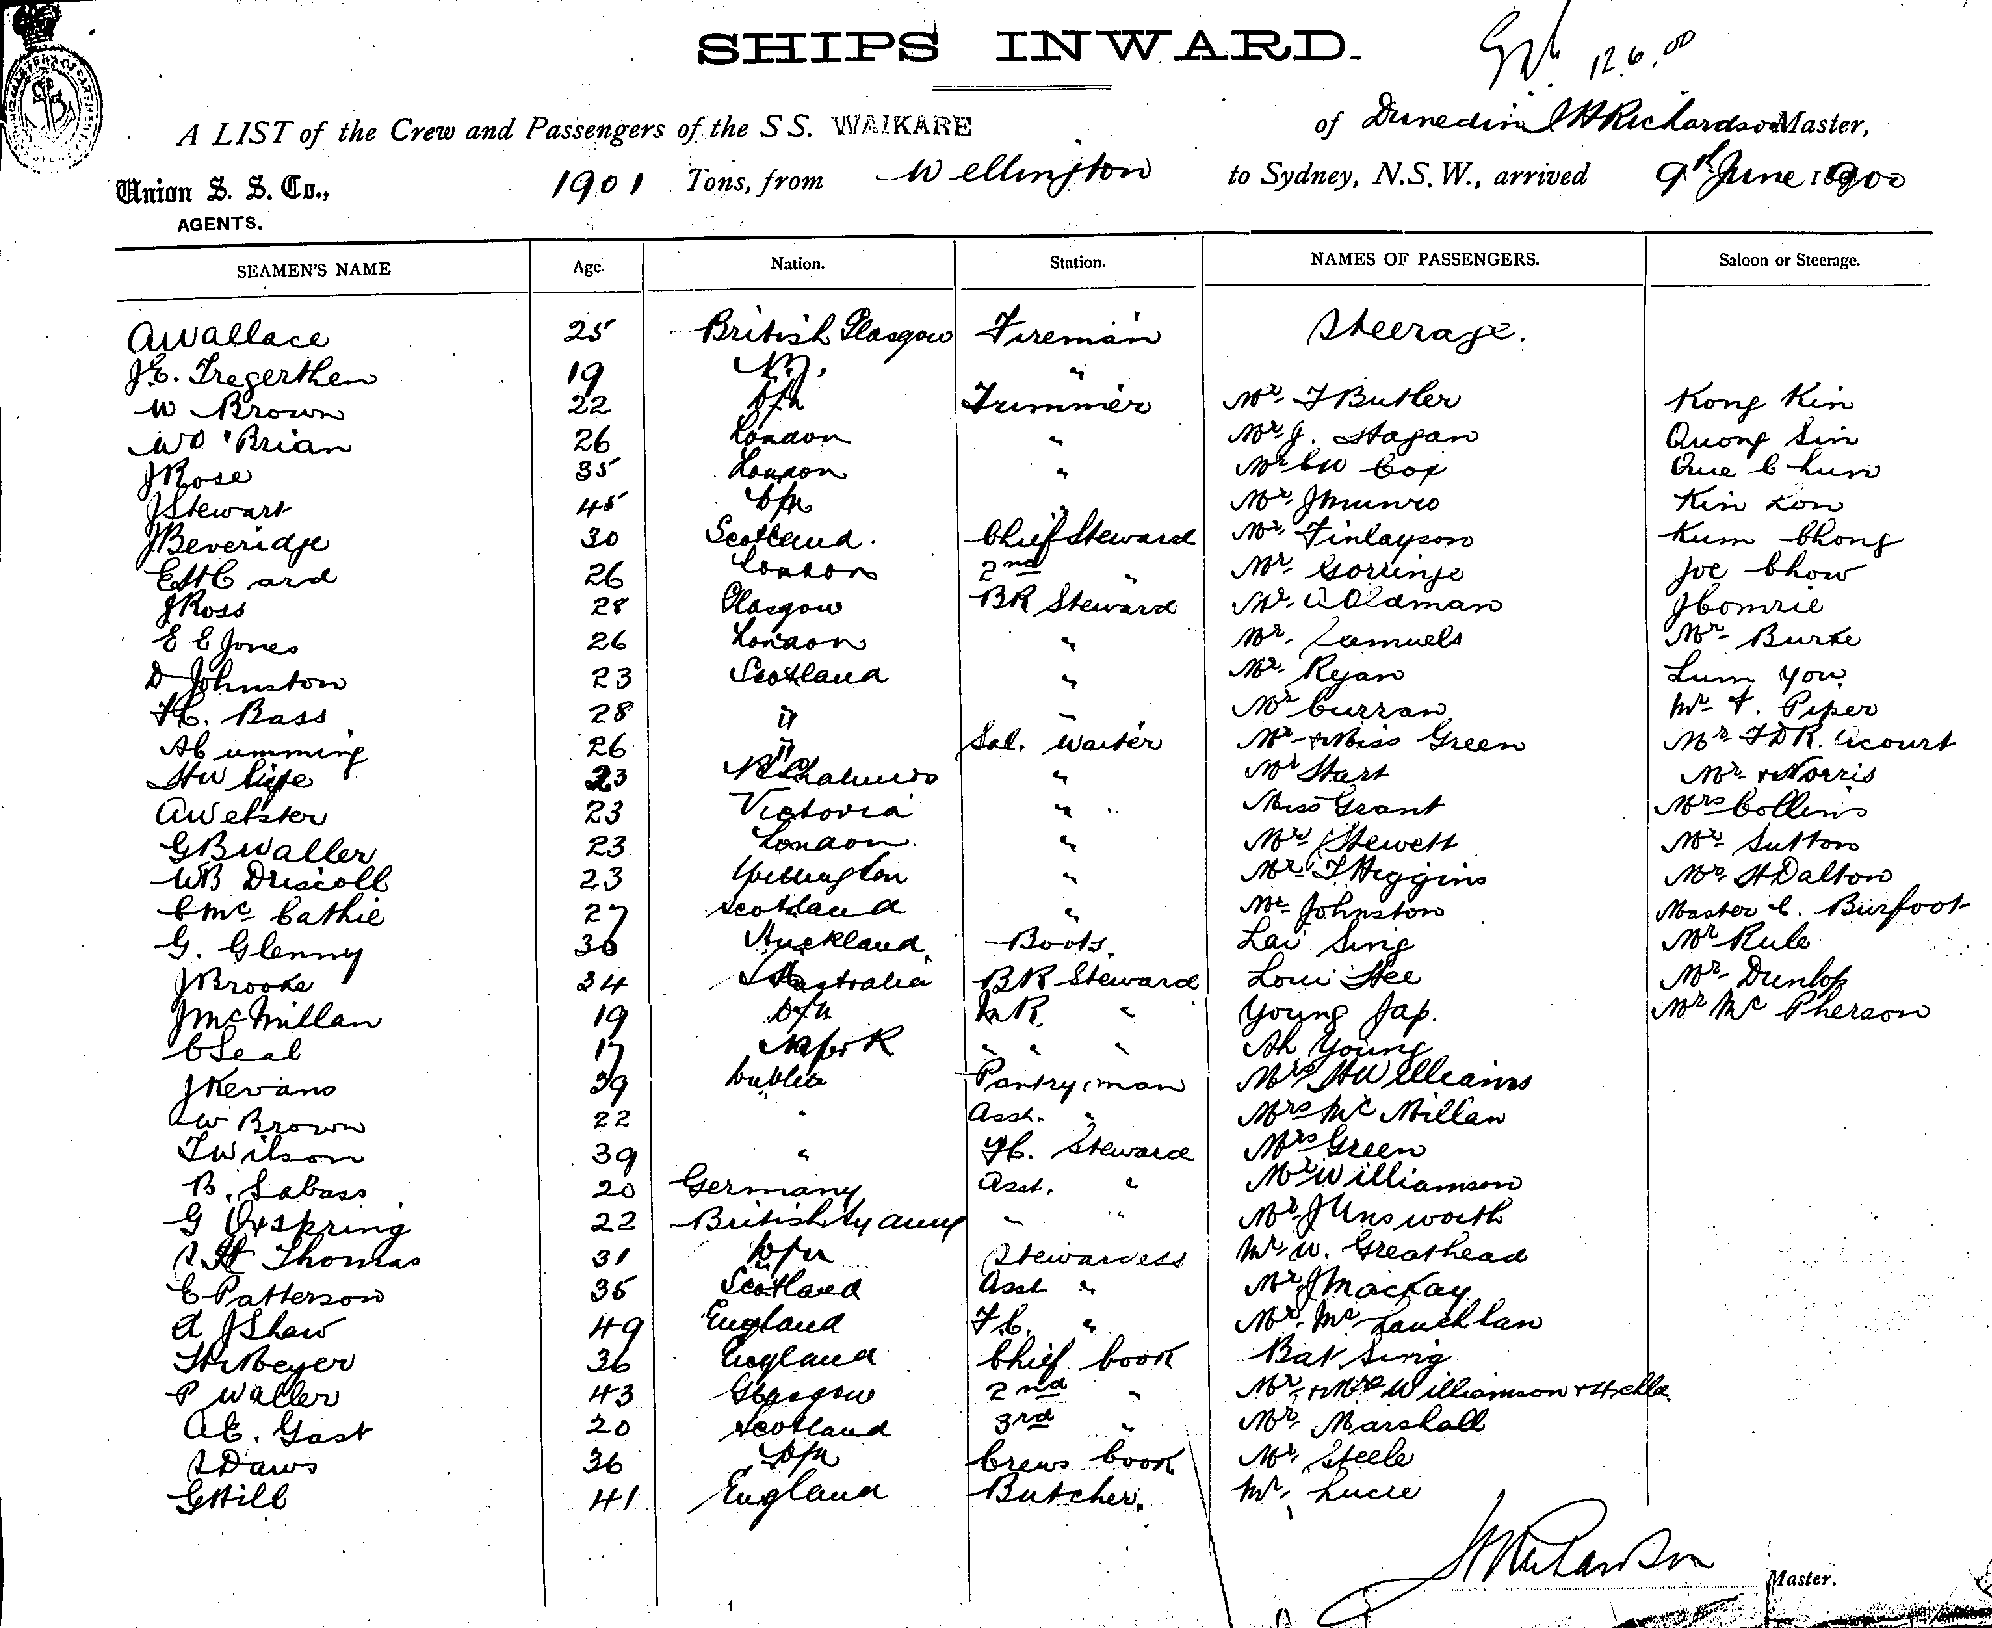 SHIPS INWARD.
12.6.00
A LIST of the Crew and Passengers of the S S. WAIKARE of Dunedin Richardson Master,
Union S. S. Co., 1901 Tons, from Wellington to Sydney, N.S.W., arrived 9th June 1900
AGENTS.
SEAMEN'S NAME Age. Nation. Station. NAMES OF PASSENGERS. Saloon or Steerage.
A Wallace 25 British Glasgow Fireman Steerage.
J E. Tregerthen 19 N.Z. "
W Brown 22 Trimmer Mr F Butler Kong Kin
W O'Brian 26 London " Mr J. Hagan Quong Sin
J Rose 35 London " Mr C W Cox Que Chun
J Stewart 45 " Mr J Munro Kin Lon
J Beveridge 30 Scotland. Chief Steward Mr Finlayson Kum Chong
E H Card 26 London 2nd " Mr Gorringe Joe Chow
J Ross 28 Glasgow BR Steward Mr Oldman J Comrie
E E Jones 26 London " Mr Samuels Mr Burke
D Johnston 23 Scotland " Mr Ryan Lum You
Bass 28 " " Mr Curran Mr F. Piper
A Cumming 26 " Sal. Waiter Mr & Miss Green Mr Acourt
H W 23 Pt Chalmers " Mr Hart Mr Norris
A Webster 23 Victoria " Miss Grant Mrs Collins
G B Waller 23 London " Mr Stewett Mr Sutton
W B Driscoll 23 Wellington " Mr T Higgins Mr H Dalton
C Mc Cathie 27 Scotland " Mr Johnston Master C. Burfoot
G. Glenny 30 Auckland Boots. Lai Sing Mr Rule
J Brooke 24 Australia BR Steward Loui Hee Mr Dunlop
J McMillan 19 " Young Jap. Mr Mc Pherson
C Seal 17 " " " Ah Young
J Kevans 39 Dublin Pantryman Mrs H Williams
A W Brown 22 " Asst. " Mrs Mc Millan
T Wilson 39 " F C. Steward Mrs Green
B. Sabass 20 Germany Asst. " Mr Williamson
G Oxspring 22 British " " Mr J Unsworth
S H Thomas 31 Stewardess Mr W. Greathead
E Patterson 35 Scotland Asst " Mr J Mackay
A J Shaw 49 England F.C. " Mr Mc Lauchlan
Meyer 36 England Chief Cook Bat Sing
P Waller 43 Glasgow 2nd " Mr & Mrs Williamson
A E. Gast 20 Scotland 3rd " Mr Marshall
S Daws 36 Crews Cook Mr Steele
G Hill 41 England Butcher. Mr Lucie
Richardson Master.